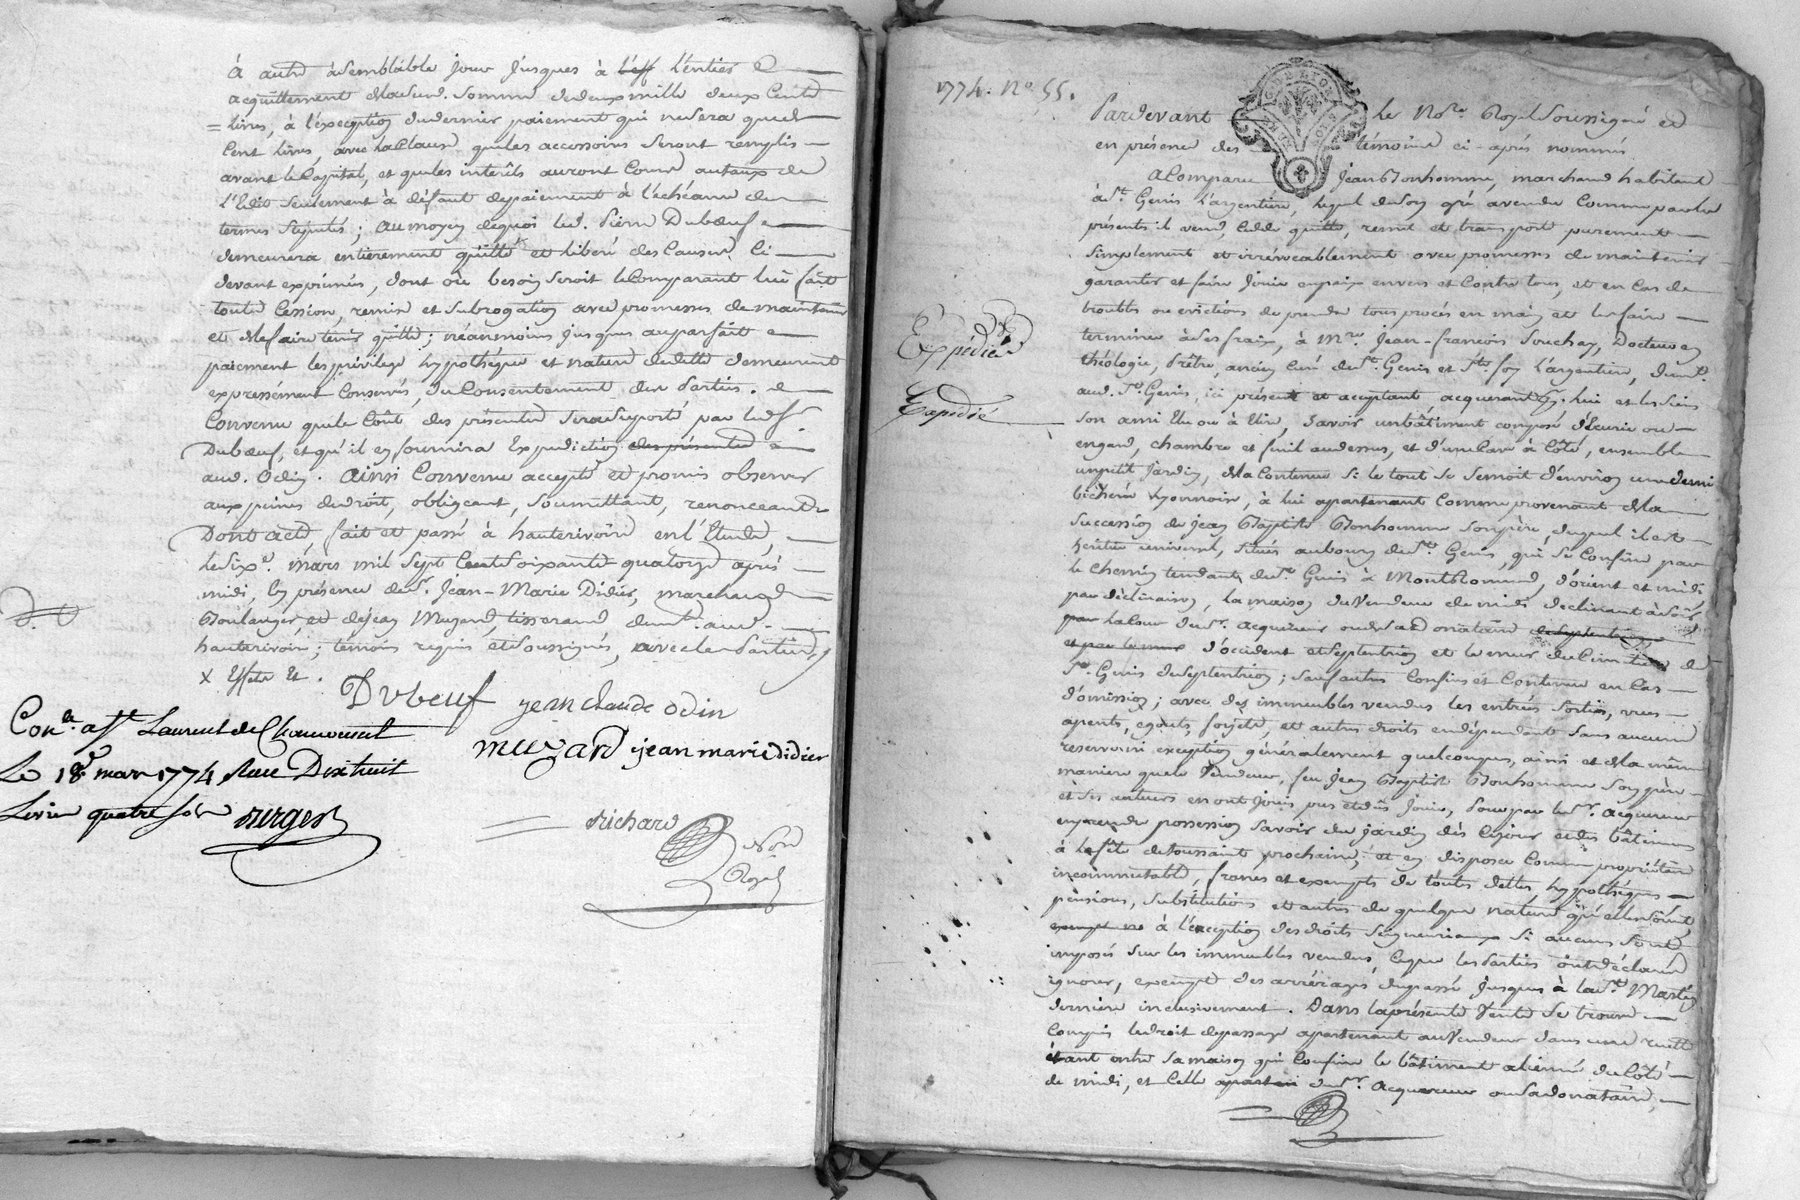 à autre à semblable jour jusques à l'eff l'entier
acquittement de lad. somme de deux mille deux cents
= livres, à l'exception du dernier paiement qui ne sera que de
Cent livres avec la Clause que les accessoires seront remplis
avant le Capital, et que les intérêts auront cours au taux de
l'Edit seulement à défaut de paiement à l'échéance des
termes stipulés; au moyen de quoi led. Pierre Dubœuf
demeurera entièrement quitte et libéré des causes ci
devant exprimées, dont où besoin seroit le Comparant lui fait
toute Cession, remise et subrogation avec promesses de maintenir
et de faire tenir quitte; néanmoins jusques au parfait
paiement les privilege hypothèque et nature de dette demeurent
expressément Conservés, du Consentement des Parties.
Convenu que le Coût des présentes sera suporté par led.
Dubœuf, et qu'il en fournira Expédition des présentes
aud. Odin. Ainsi Convenu accepté et promis observer
aux peines de droit, obligeant, soumettant, renonceant
Dont acte, fait et passé à hauterivoire en l'Etude,
le six.e mars mil sept Cent soixante quatorze après
midi, en présence de sr. Jean-Marie Didier, marchand
Boulanger, et de jean Muzard, tisserand demt. aud.
hauterivoire; témoins requis et soussignés, avec les Parties
x Effets Et.
Dubeuf jean claude odin
muzard jean marie didier
Con.le a St Laurent de Chamousset
Le 18e mars 1774 Reçu Dixhuit
Livres quatre sols
richard
Nore
Royal
1774. No. 55.
Pardevant le Nore. Royal soussigné et
en présence des témoins ci-après nommés
a Comparu Jean Bonhomme, marchand habitant
à St. Genis l'argentiere, lequel de son gré a vendu Comme par les
présentes il vend, Cede quitte, remet et transporte purement
simplement et irrévocablement avec promesses de maintenir
garantir et faire jouir en paix envers et Contre tous, et en Cas de
troubles ou evictions de prendre tous procès en main et les faire
terminer à ses frais, à Mre. Jean-françois Souchay, Docteur en
théologie, Prêtre, ancien Curé de St. Genis et Ste. foy l'argentiere, demt.
aud. St. Genis, ici présent et acceptant acquerant pr. lui et les siens
son ami Elu ou à Elire, savoir un bâtiment composé d'Ecurie ou
engard, chambre et fenil au dessus, et d'une Cave à Côté, ensemble
un petit jardin, de la contenue si le tout se semoit d'environ une demi
bicherée lyonnoise, à lui apartenant Comme provenant de la
succession de jean Baptiste Bonhomme son père, duquel il est
heritier universel, situés au bourg de St. Genis, qui se Confine par
le Chemin tendant de St. Genis à Montromand, d'orient et midi
par déclinaison, la maison du Vendeur de midi declinant à soir
par la Cour de sr. acquereur ou de sa donataire
d'occident et septentrion et le mur du Cimetière de
St. Genis de septentrion; sauf autres Confins et Contenue en Cas
d'omission; avec des immeubles vendus les entrées sorties, vues
apents, egouts, forjets, et autres droits en dépendant sans aucune
reserve ni exception généralement quelconque, ainsi et de la même
maniere que le Vendeur, feu jean Baptiste Bonhomme son père
et ses auteurs en ont joui, pu et dû jouir, pour par le sr. acquereur
en prendre possession savoir du jardin dès Cejour et des bâtimens
à la fête de toussaint prochaine; et en disposer Comme propriétaire
incommutable, francs et exempts de toutes dettes, hypothèques
pensions, substitutions et autres de quelque nature qu'elles soient
à l'exception des droits seigneuriaux si aucuns sont
imposés sur les immeubles vendus, Ce que les Parties ont déclaré
ignorer, exempts des arrérages du passé jusques à la St. Martin
dernière inclusivement. Dans la présente Vente se trouve
Compris le droit de passage apartenant au Vendeur dans une ruelle
étant entre sa maison qui Confine le bâtiment aliéné du Côté
de midi, et Celle apartenant de sr. acquereur ou sa donataire,
Expédiée
Expédié